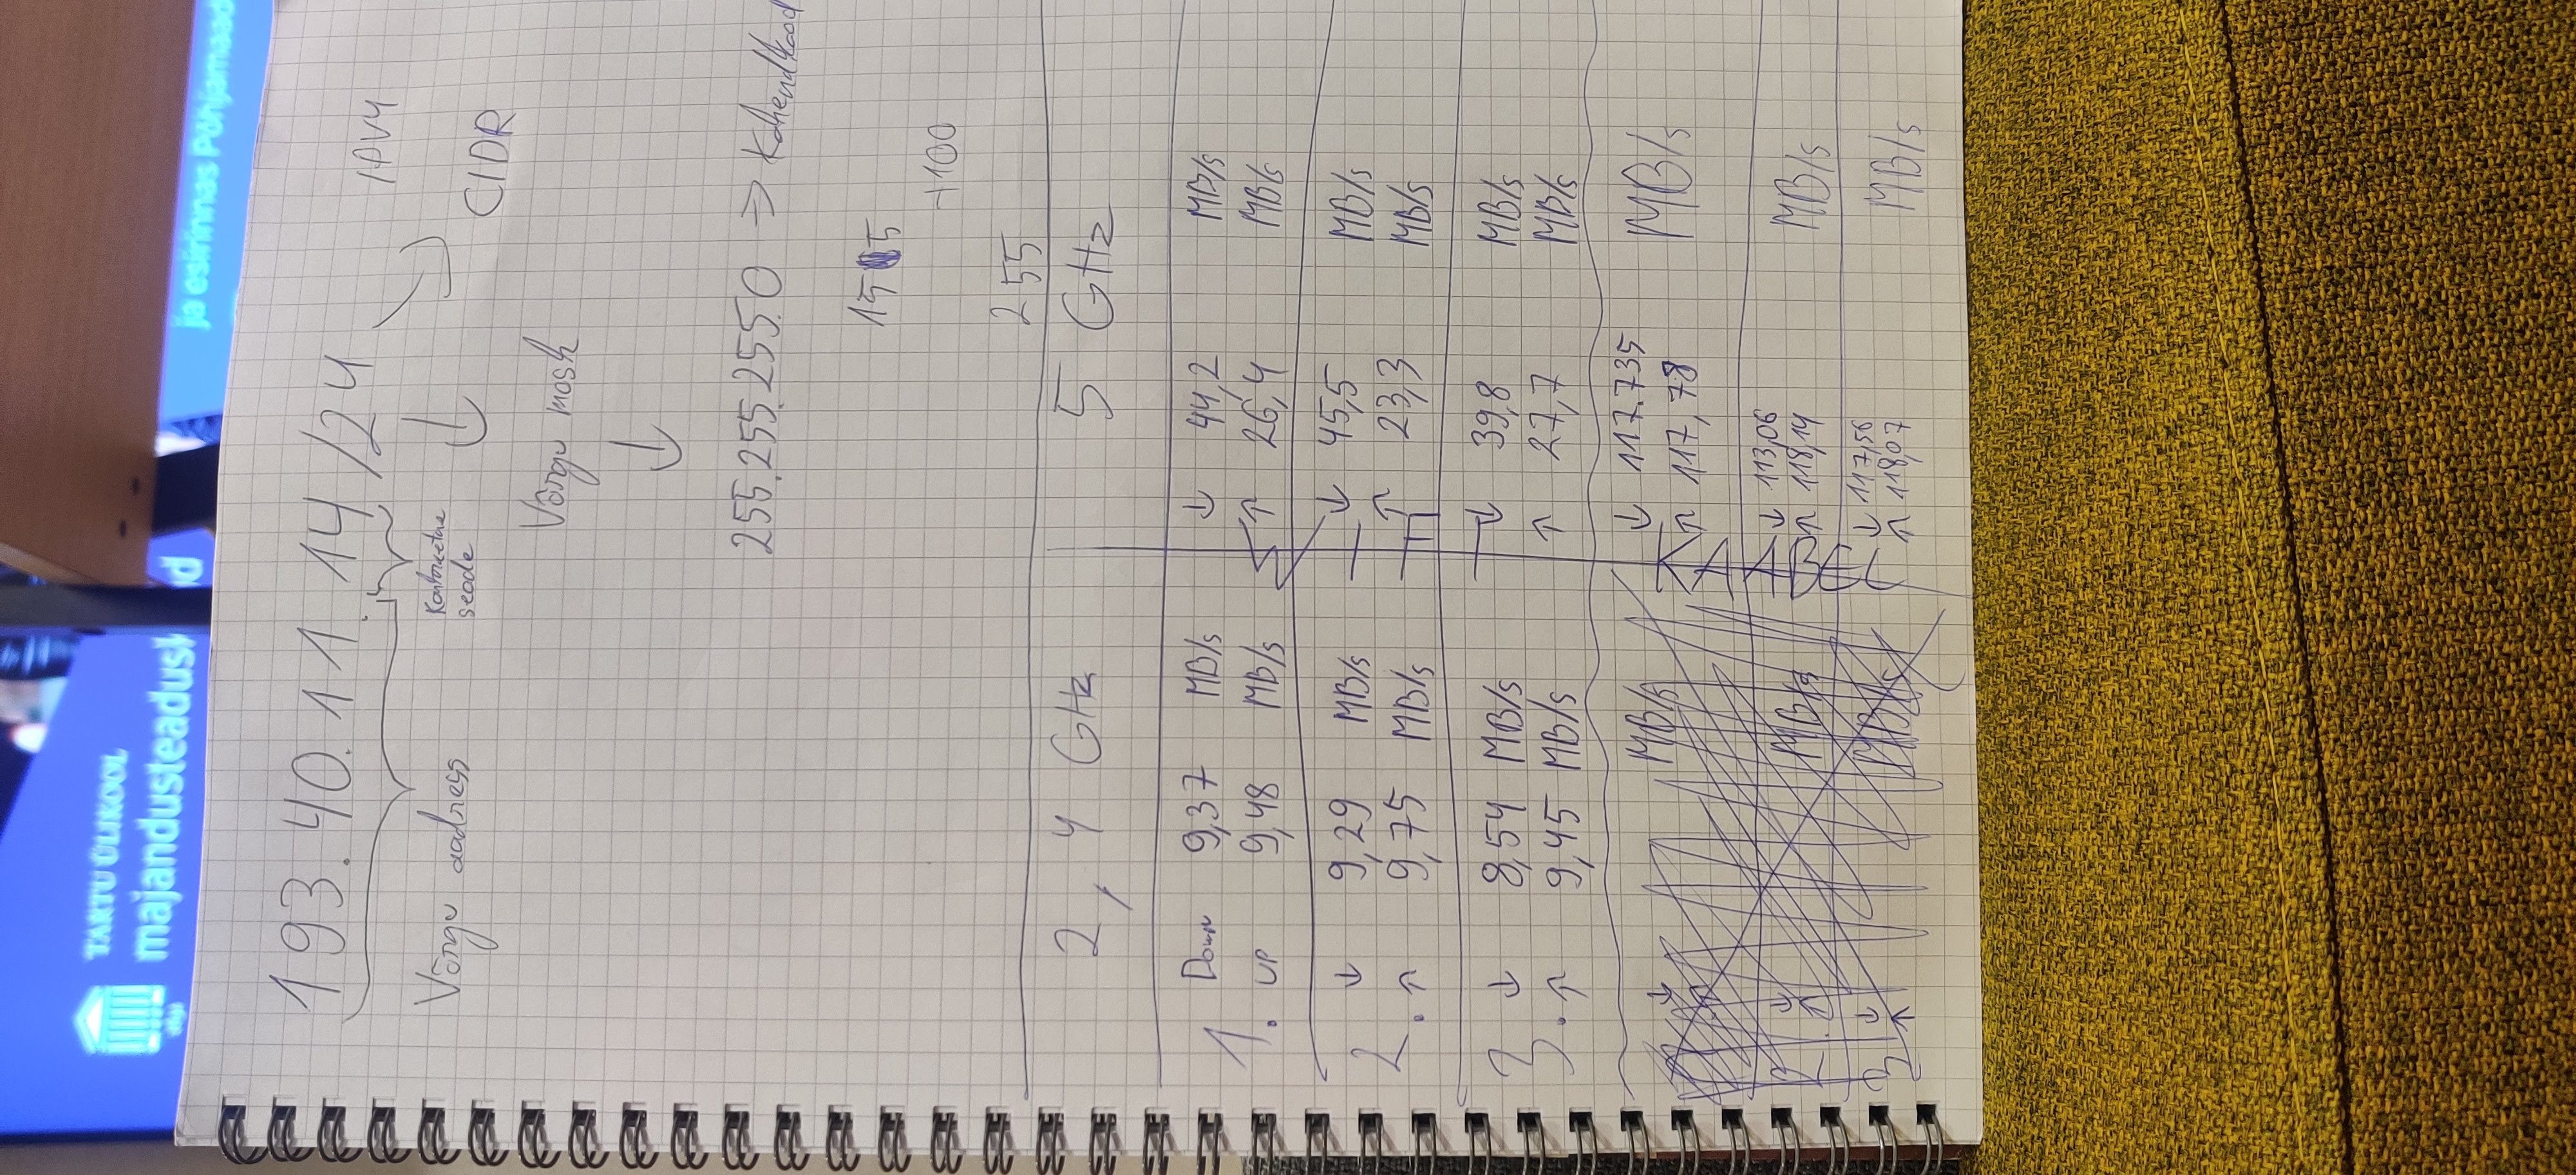 TARTU ÜLIKOOL
majandusteadusk d
ja esirinnas Põhjamaad
193.40.11.14/24
IPV4
Võrgu aadress
Konkreetne
seade
CIDR
Võrgu mask
255.255.255.0 => Kahendkood
15 5
+100
255
2,4 GHz 5 GHz
1. Down 9,37 MB/s ↓ 44,2 MB/s
UP 9,48 MB/s ↑ 26,4 MB/s
2. ↓ 9,29 MB/s ↓ 45,5 MB/s
↑ 9,75 MB/s ↑ 23,3 MB/s
3. ↓ 8,54 MB/s ↓ 39,8 MB/s
↑ 9,45 MB/s ↑ 27,7 MB/s
KAABEL
↓ MB/s ↓ 117.735 MB/s
↑ 117,78
2. ↓ MB/s ↓ 113,06 MB/s
↑ ↑ 118,14
3 ↓ MB/s ↓ 117,56 MB/s
↑ ↑ 118,07